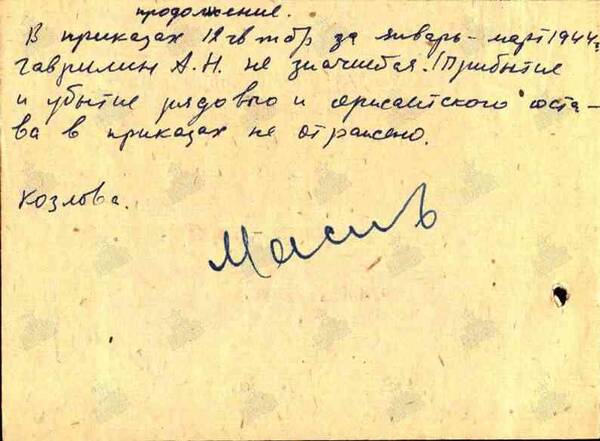 продолжение.
В приказах 12 гв тбр за январь - март 1944 г.
Гаврилин А.Н. не значится. (Прибытие
и убытие рядового и сержантского соста-
ва в приказах не отражено.
Козлова.